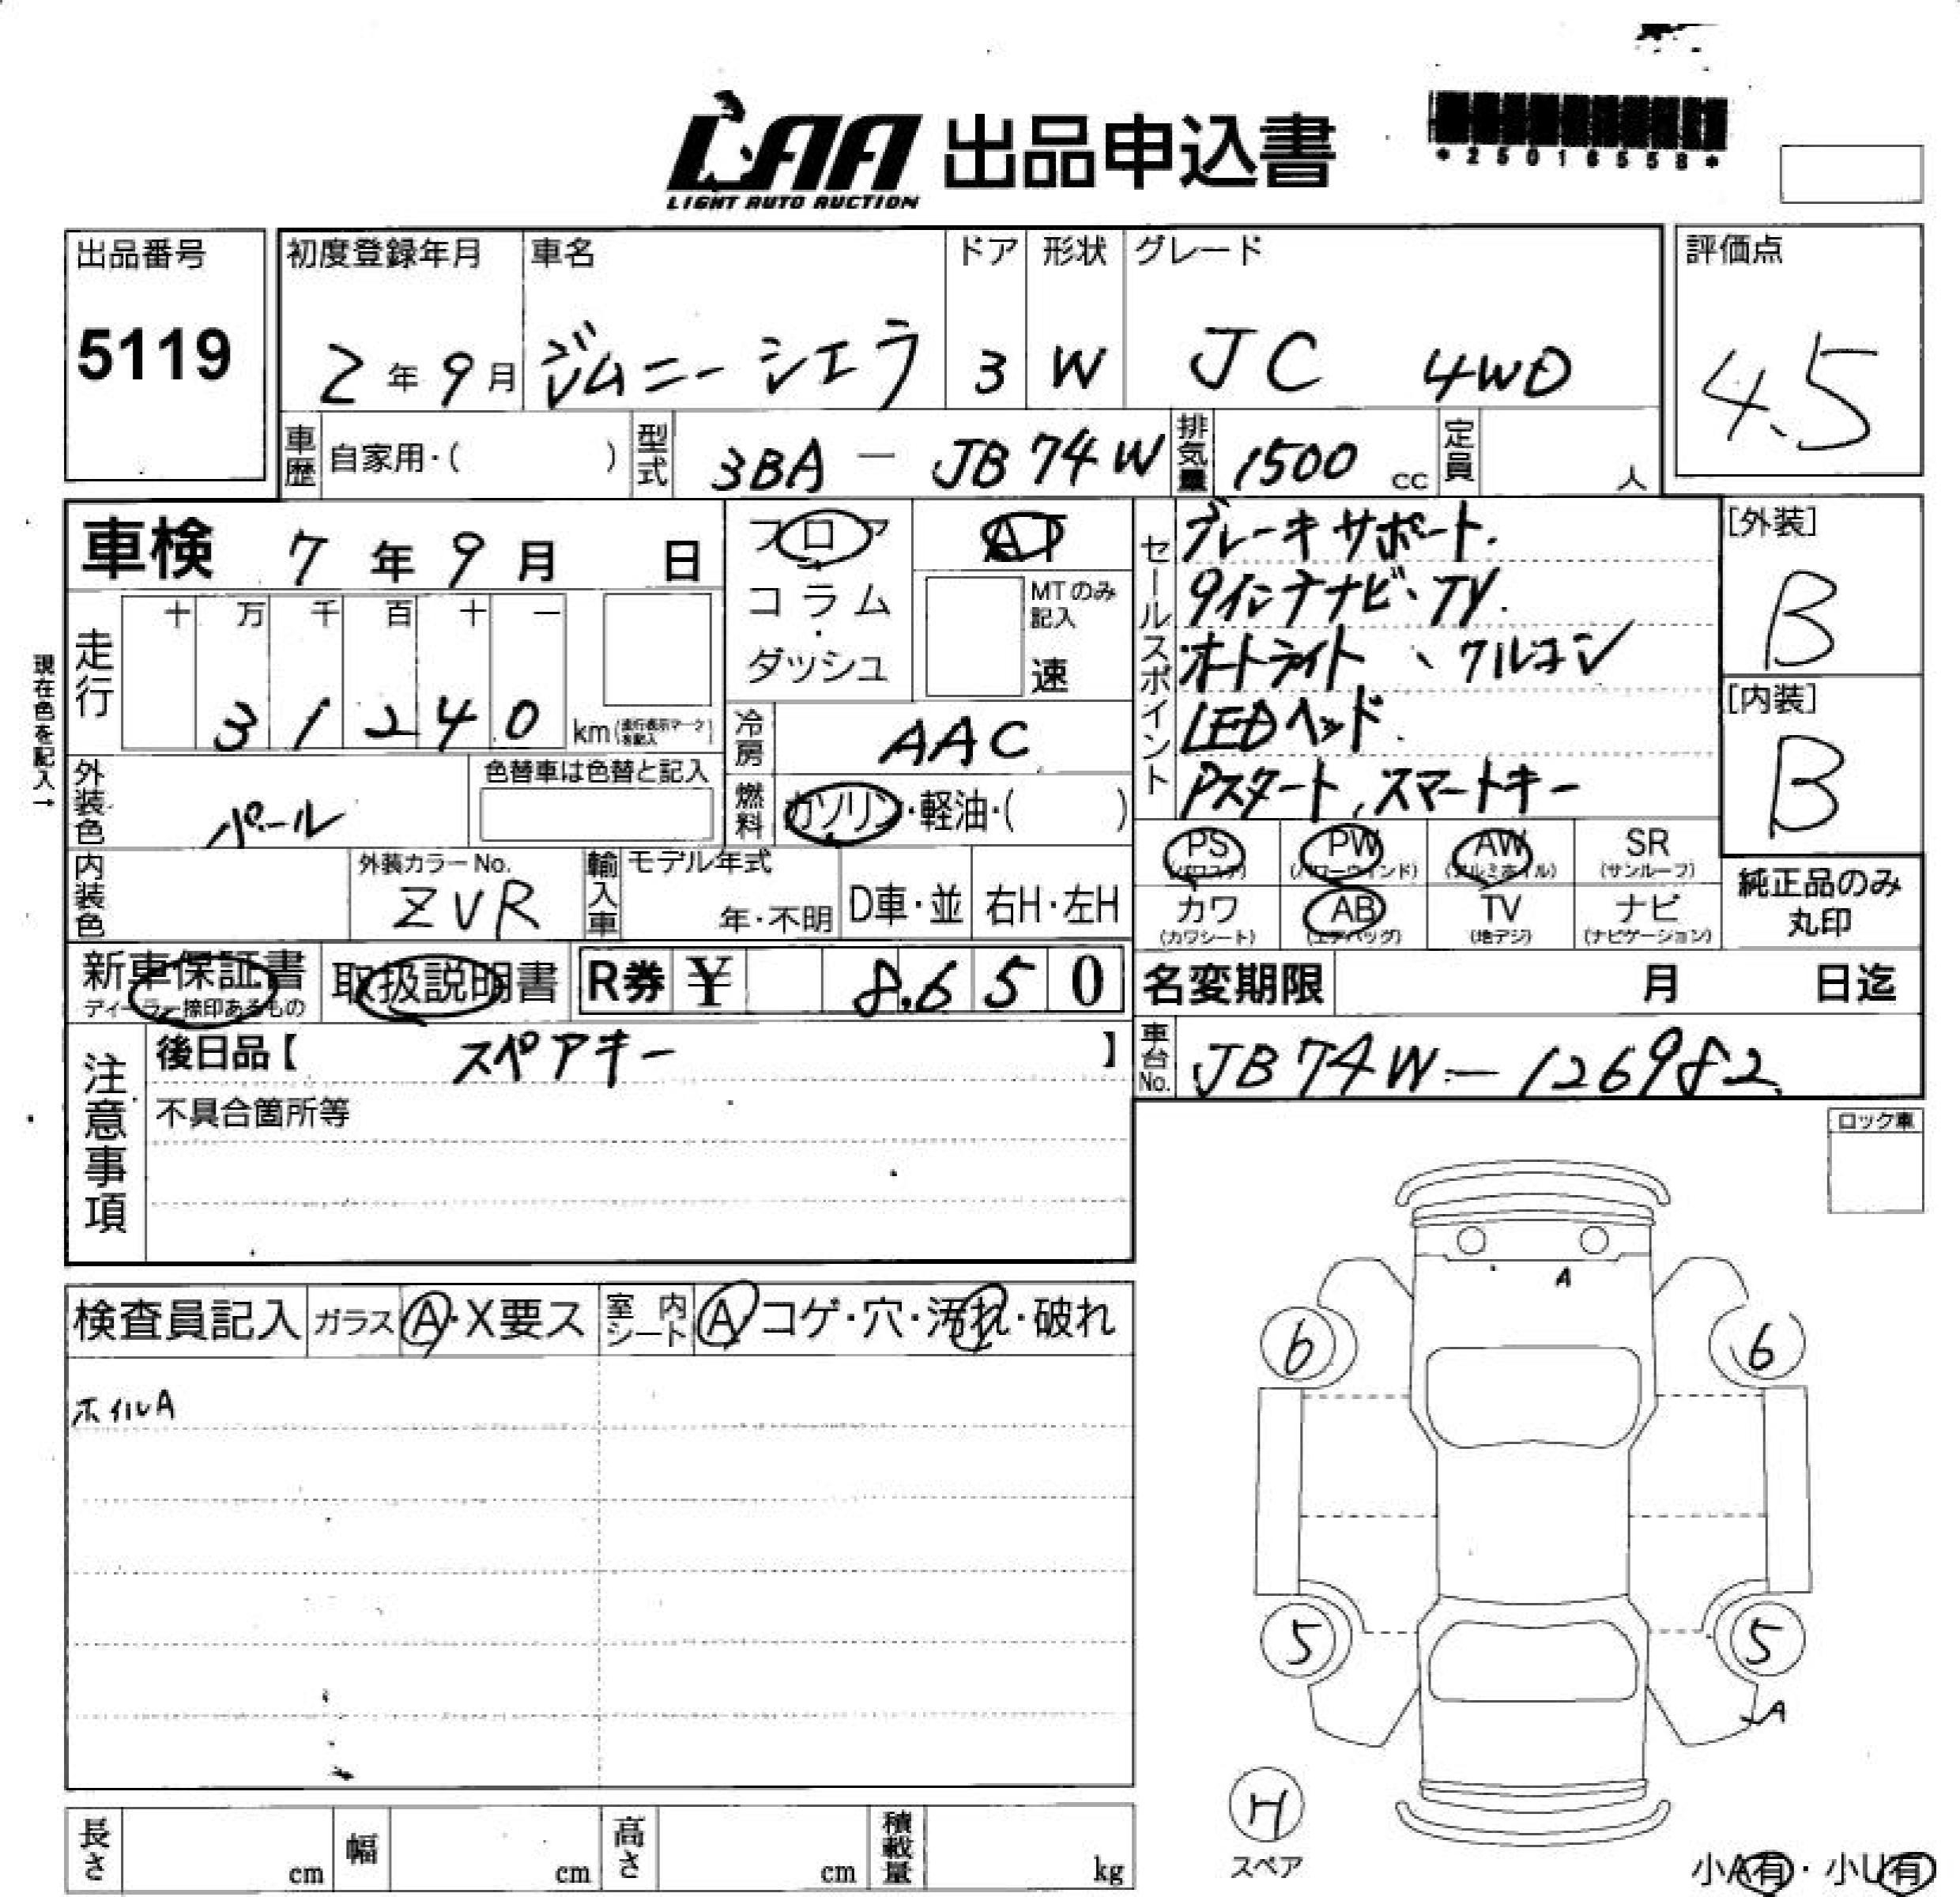 LAA 出品申込書
LIGHT AUTO AUCTION
*25016558*
出品番号
5119
初度登録年月 車名 ドア 形状 グレード
2年9月 ジムニーシエラ 3 W JC 4WD
評価点
4.5
車歴 自家用・( ) 型式 3BA - JB74W 排気量 1500 cc 定員 人
車検 7年9月 日
フロア
コラム
・
ダッシュ
AT
MTのみ
記入
速
セールスポイント
ブレーキサポート.
9インチナビ、TV.
オートライト、クルコン
LEDヘッド
Pスタート、スマートキー
[外装]
B
[内装]
B
現在色を記入→
走行 十 万 千 百 十 一
31240 km(走行表示マークを記入)
冷房 AAC
燃料 ガソリン・軽油・( )
外装色 パール 色替車は色替と記入
内装色 外装カラーNo. ZVR
輸入車 モデル年式 年・不明 D車・並 右H・左H
PS (パワステ) PW (パワーウインド) AW (アルミホイル) SR (サンルーフ)
カワ (カワシート) AB (エアバッグ) TV (地デジ) ナビ (ナビゲーション)
純正品のみ
丸印
新車保証書 取扱説明書 R券 ¥ 8,650
ディーラー捺印あるもの
名変期限 月 日迄
注意事項
後日品【 スペアキー 】
不具合箇所等
車台No. JB74W-126982
ロック車
検査員記入 ガラス A・X要ス 室内シート A コゲ・穴・汚れ・破れ
ホイルA
A
6 6
5 5
A
スペア
小A有・小U有
長さ cm 幅 cm 高さ cm 積載量 kg